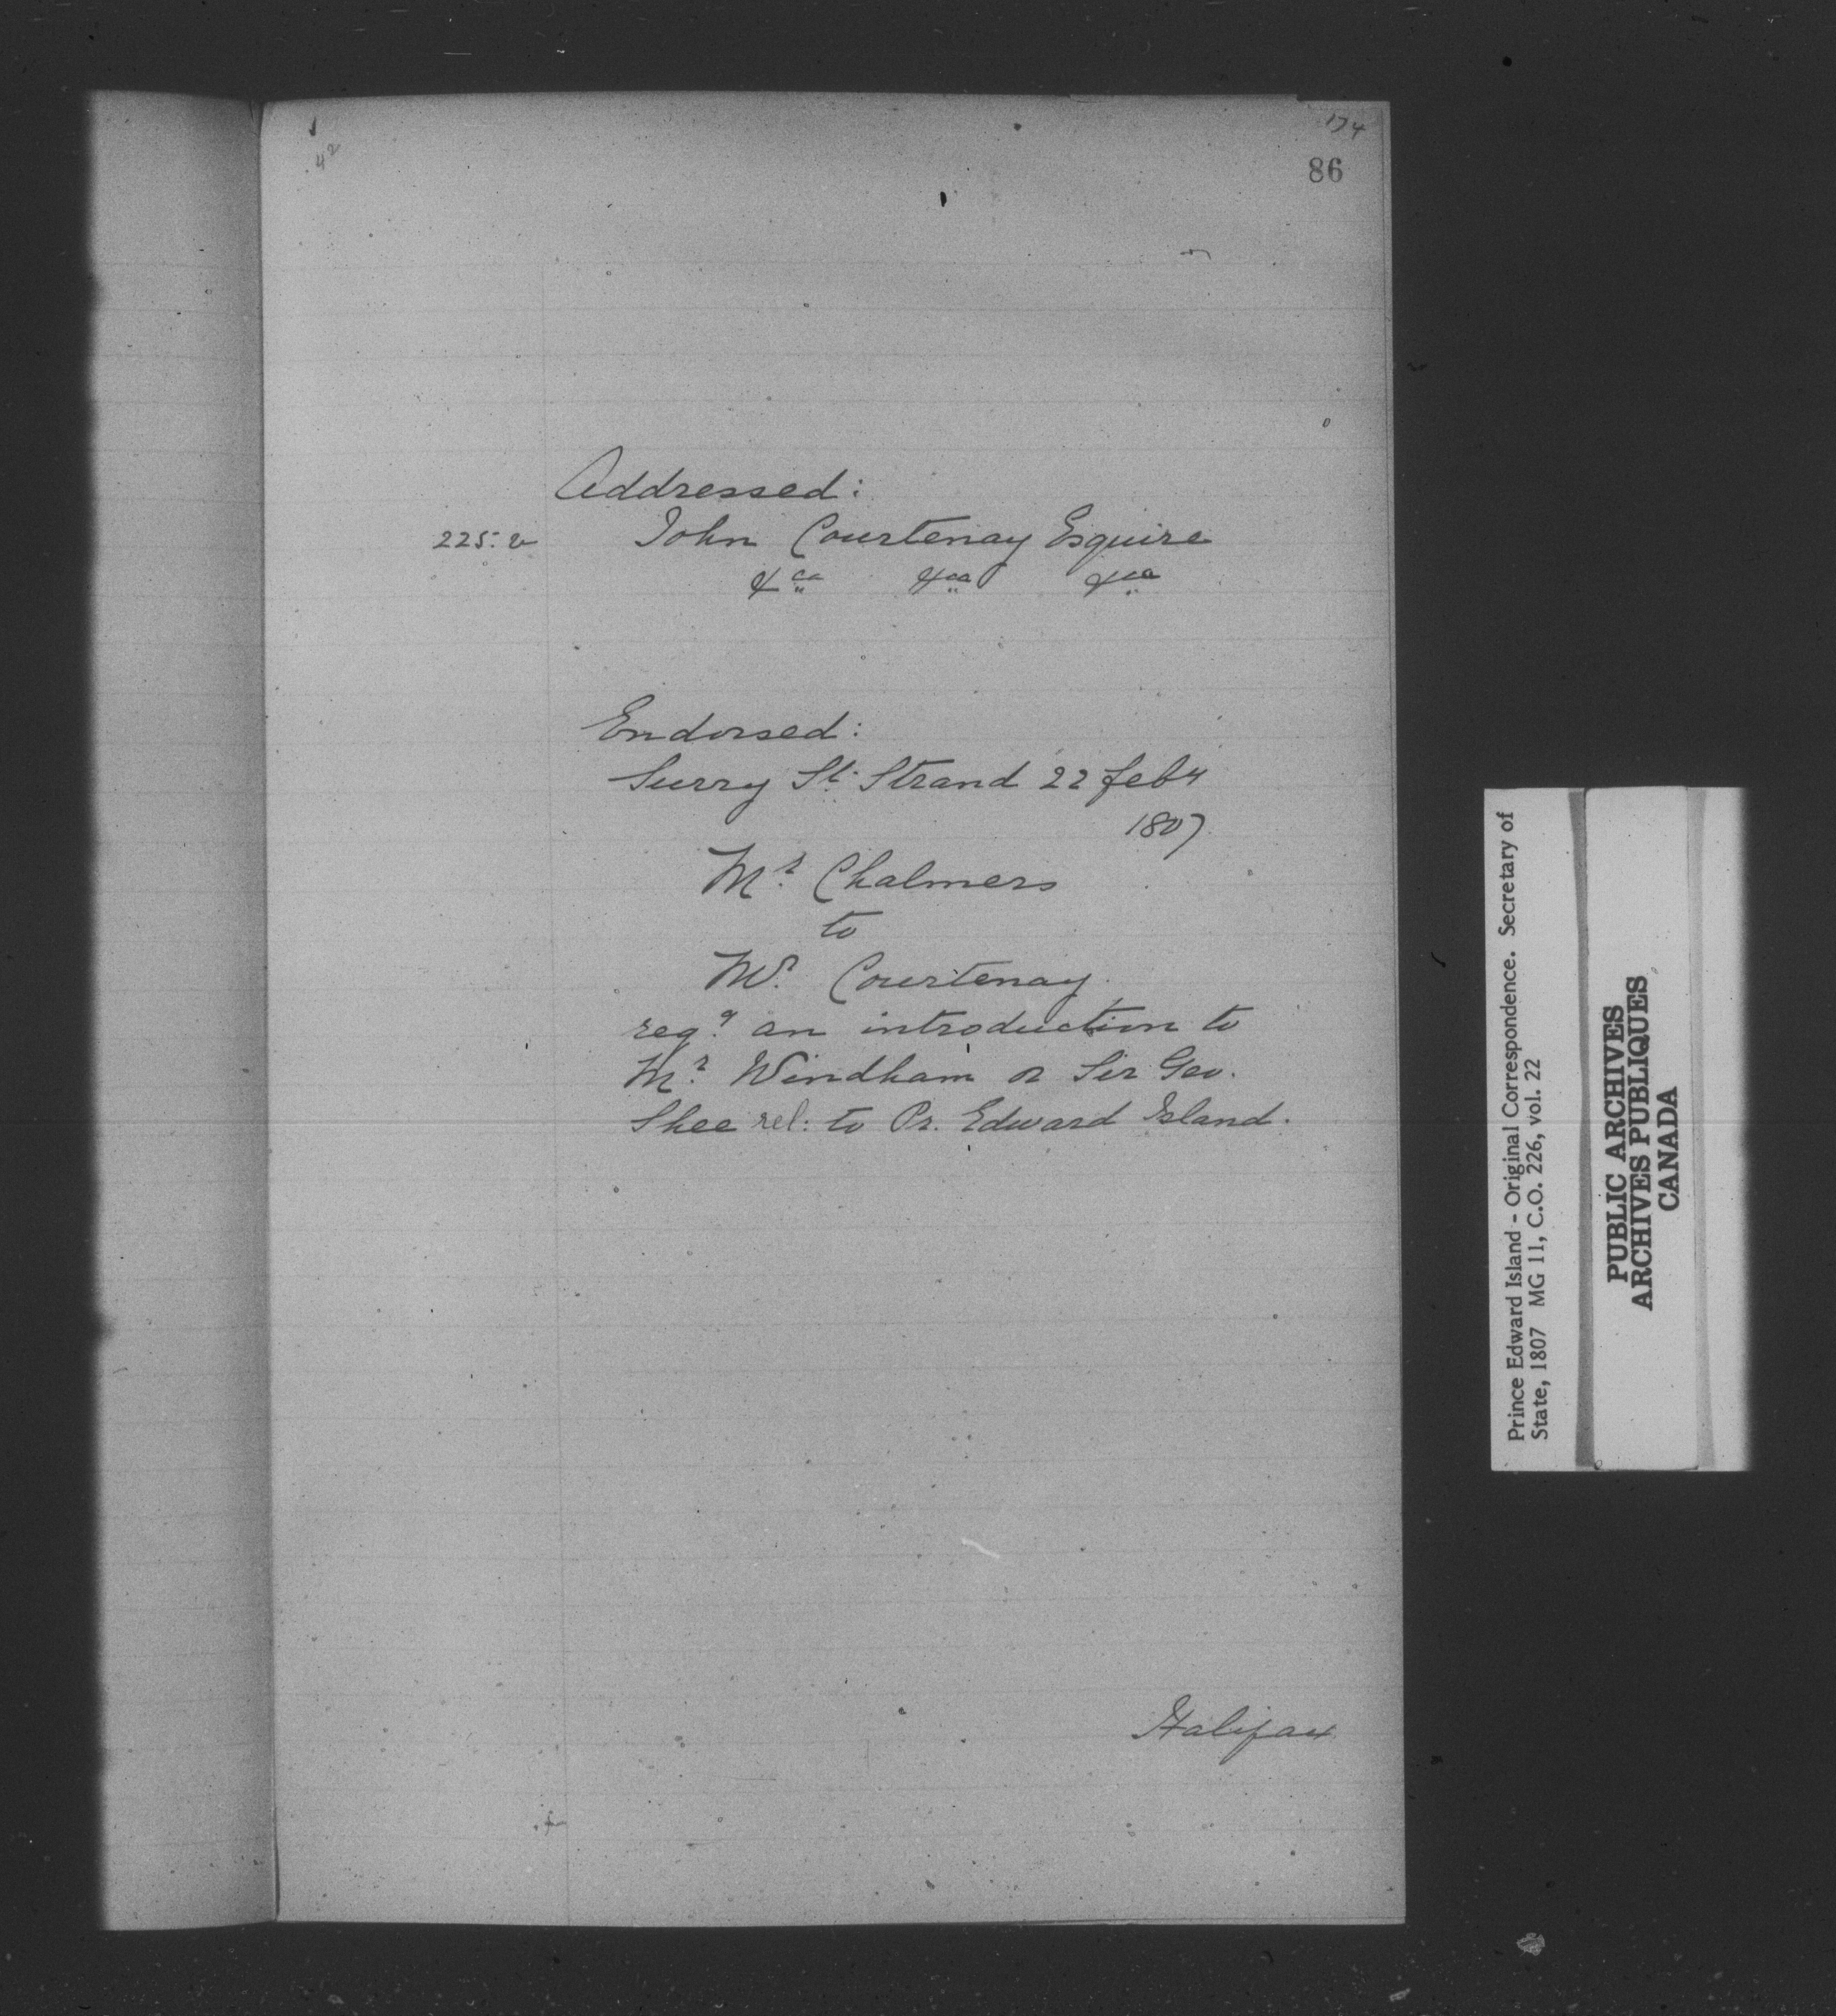 42
174
86
Addressed:
225. v John Courtenay Esquire
&ca &ca &ca
Endorsed:
Surry St. Strand 22 feby
1807.
Mr. Chalmers
to
Mr. Courtenay.
reqg. an introduction to
Mr. Windham or Sir Geo.
Shee rel: to Pr. Edward Island.
Halifax
Prince Edward Island - Original Correspondence. Secretary of
State, 1807 MG 11, C.O. 226, vol. 22
PUBLIC ARCHIVES
ARCHIVES PUBLIQUES
CANADA